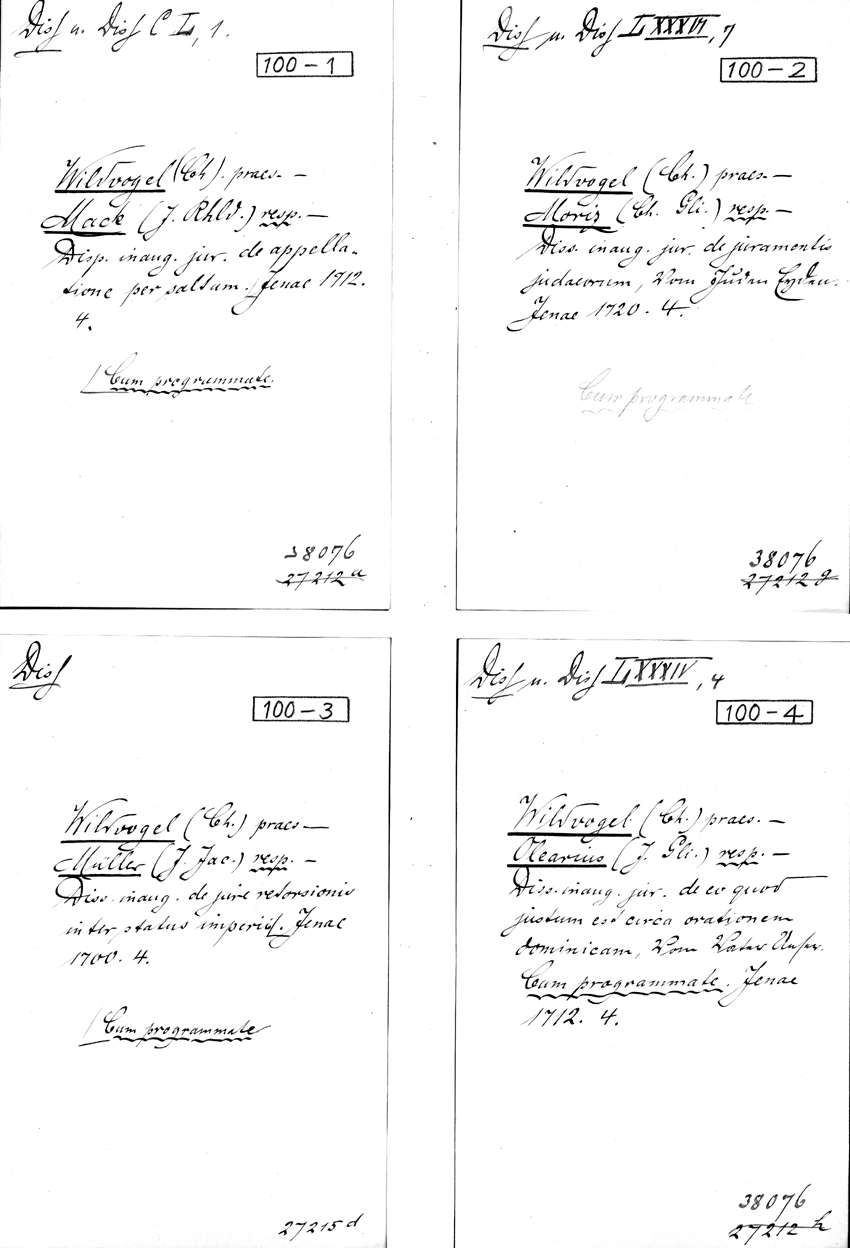 Diss u. Diss C L, 1.
100-1
Wildvogel (Ch). praes. —
Mack (J. Rhld.) resp. —
Disp. inaug. jur. de appella-
tione per saltum. Jenae 1712.
4.
/ Cum programmate.
38076
27212 a
Diss u. Diss LXXXVI, 7
100-2
Wildvogel (Ch.) praes. —
Moriz (Ch. Gli.) resp. —
Diss. inaug. jur. de juramentis
judaeorum, Vom Juden Eyden.
Jenae 1720. 4.
Cum programmate
38076
27212 g
Diss
100-3
Wildvogel (Ch.) praes —
Müller (J. Jac.) resp. —
Diss. inaug. de jure retorsionis
inter status imperii. Jenae
1700. 4.
/ Cum programmate
27215 d
Diss u. Diss LXXXIV, 4
100-4
Wildvogel (Ch.) praes. —
Olearius (J. Gli.) resp. —
Diss. inaug. jur. de eo quod
justum est circa orationem
dominicam, Vom Vater Unser.
Cum programmate. Jenae
1712. 4.
38076
27212 h